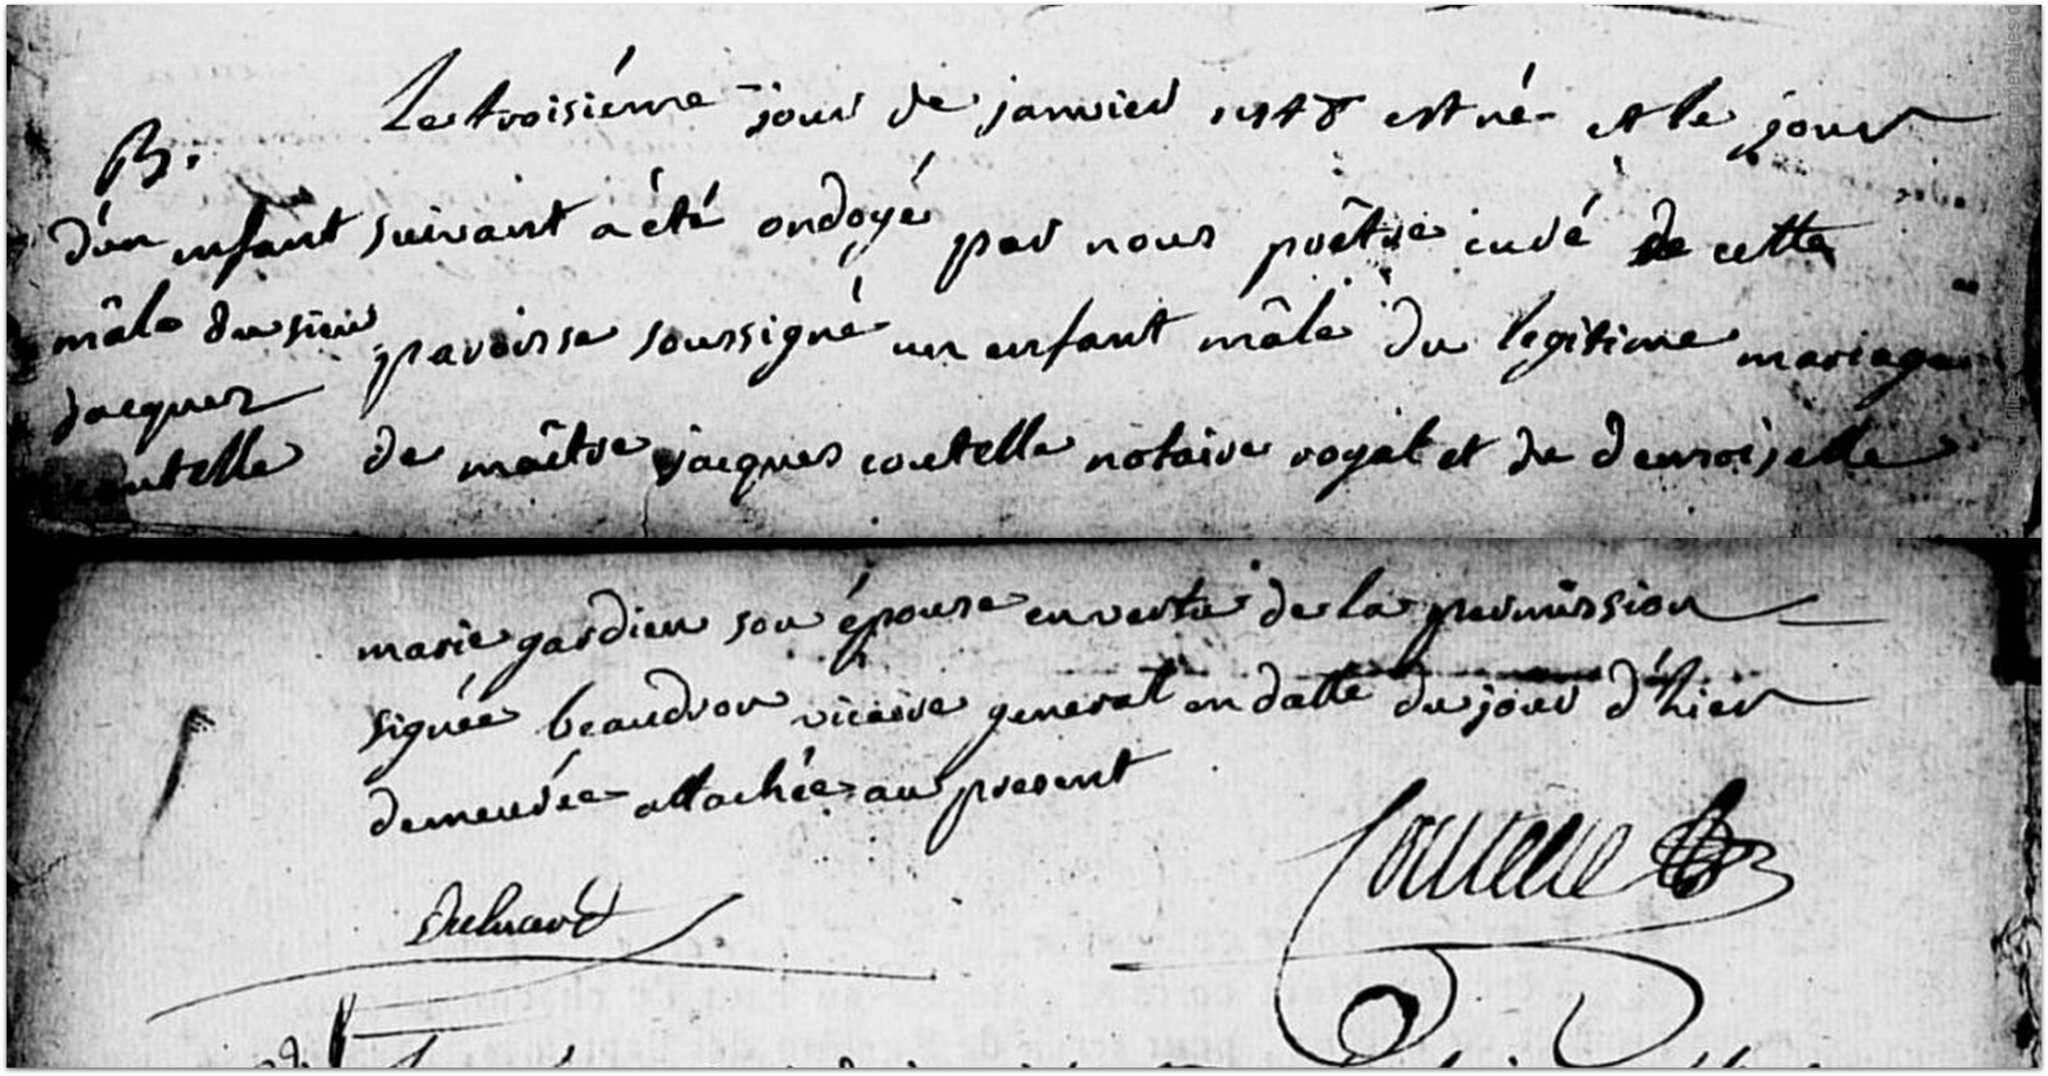 B.
d'un enfant
mâle du sieur
Jacques
coutelle
Le troisiéme jour de janvier 1748 est né et le jour
suivant a été ondoyé par nous prêtre curé de cette
paroisse soussigné un enfant mâle du legitime mariage
de maître jacques coutelle notaire royal et de demoiselle
marie gardien son épouse en vertu de la permission
signée beaudron vicaire general en datte du jour d'hier
demeurée attachée au present
Coutelle